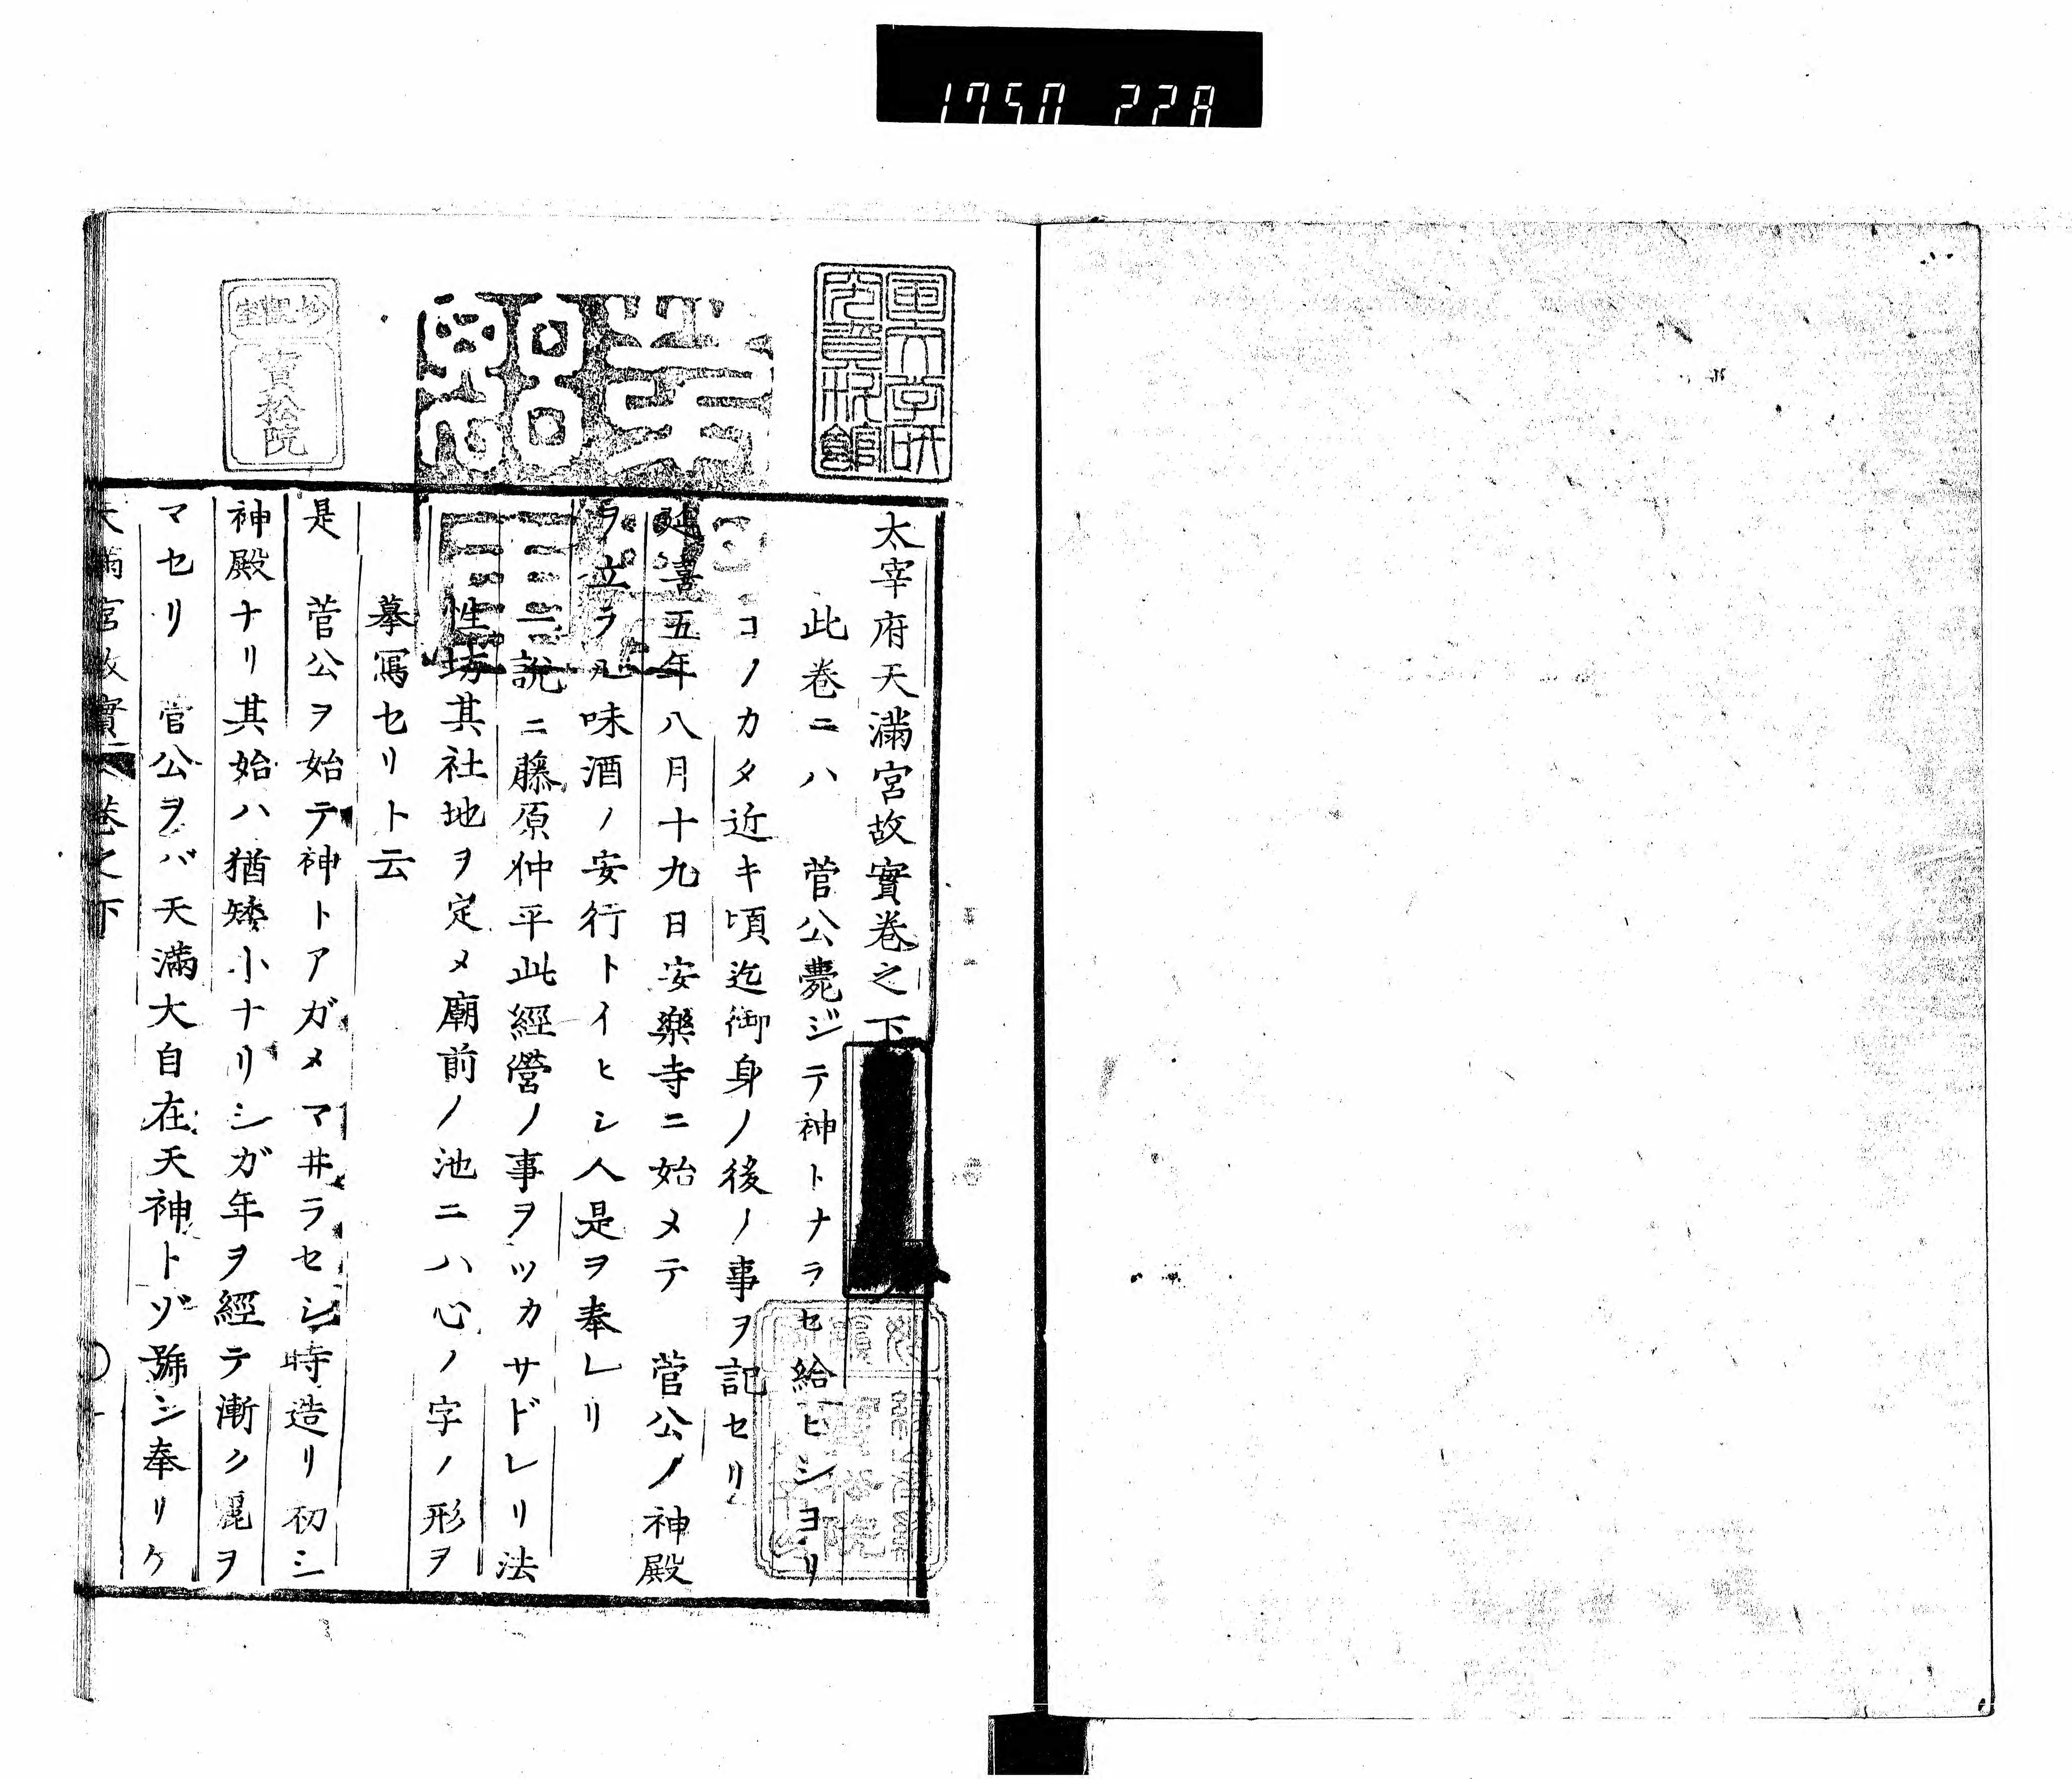 1750 228
太宰府天滿宮故實卷之下
此卷ニハ　菅公薨ジテ神トナラセ給ヒシヨリ
コノカタ近キ頃迄御身ノ後ノ事ヲ記セリ
延喜五年八月十九日安樂寺ニ始メテ　菅公ノ神殿
ヲ立ラル味酒ノ安行トイヒシ人是ヲ奉レリ
一説ニ藤原仲平此經營ノ事ヲツカサドレリ法
性坊其社地ヲ定メ廟前ノ池ニハ心ノ字ノ形ヲ
摹寫セリト云
是　菅公ヲ始テ神トアガメマ井ラセシ時造リ初シ
神殿ナリ其始ハ猶矮小ナリシガ年ヲ經テ漸ク麗ヲ
マセリ　官公ヲバ天滿大自在天神トゾ號シ奉リケ
天滿宮故實　卷之下
國文学研究資料館
寳松院